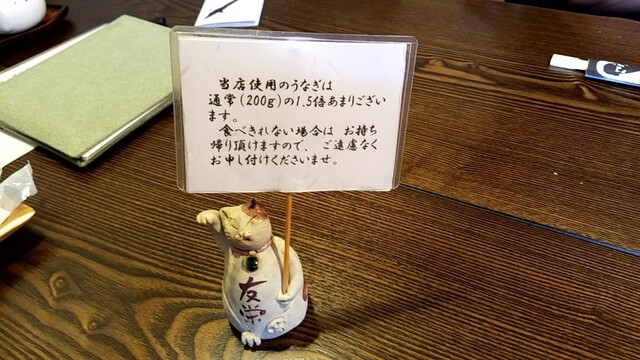 当店使用のうなぎは
通常(200g)の1.5倍あまりござい
ます。
食べきれない場合は お持ち
帰り頂けますので、ご遠慮なく
お申し付けくださいませ。
友
栄